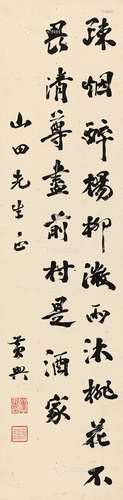 疎烟醉楊柳微雨沐桃花不
畏清尊盡前村是酒家
山田先生正
黄興